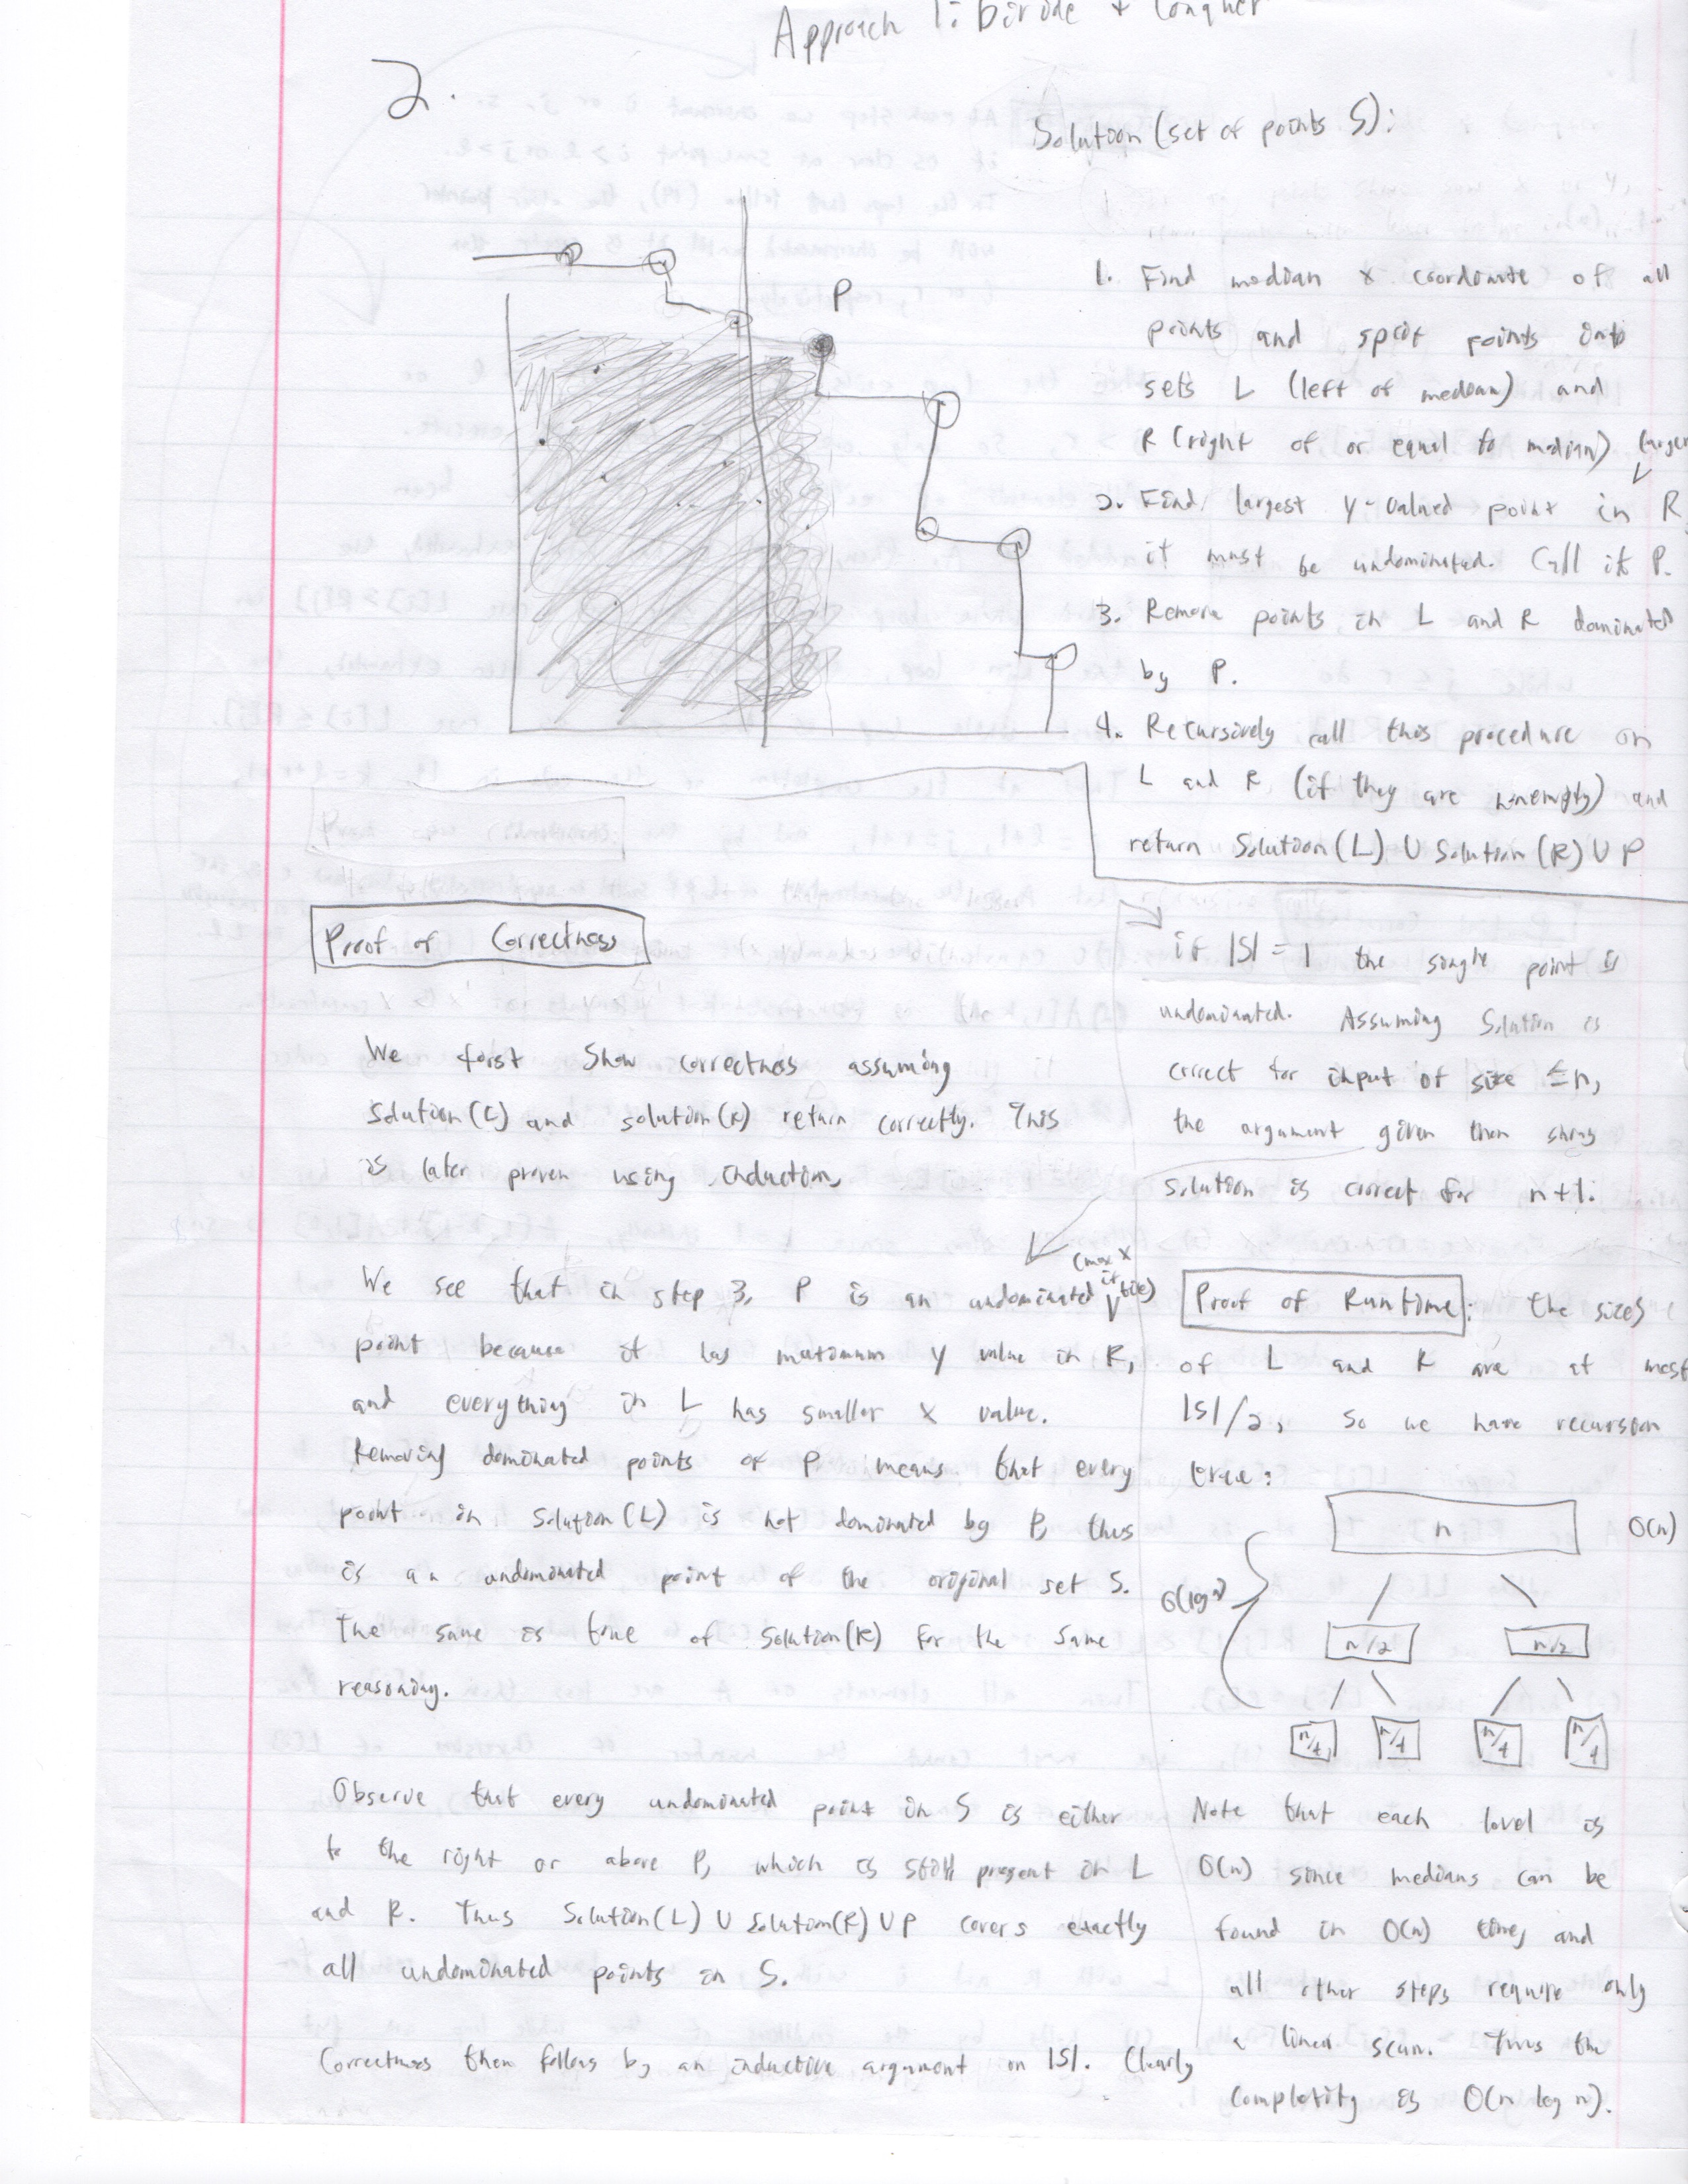 Approach 1: Divide + Conquer
2.
Solution (set of points S):
P
1. Find median x coordinate of all
points and split points into
sets L (left of median) and
R (right of or equal to median)
larger
2. Find largest y-valued point in R,
it must be undominated. Call it P.
3. Remove points in L and R dominated
by P.
4. Recursively call this procedure on
L and R (if they are nonempty) and
return Solution(L) U Solution(R) U P
Proof of Correctness
We first show correctness assuming
solution(L) and solution(R) return correctly. This
is later proven using induction.
We see that in step 3, P is an undominated
(max x
if ties)
point because it has maximum y value in R,
and everything in L has smaller x value.
Removing dominated points of P means that every
point in Solution(L) is not dominated by P, thus
is an undominated point of the original set S.
The same is true of Solution(R) for the same
reasoning.
Observe that every undominated point in S is either
to the right or above P, which is still present in L
and R. Thus Solution(L) U Solution(R) U P covers exactly
all undominated points in S.
Correctness then follows by an inductive argument on |S|. Clearly
if |S| = 1 the single point is
undominated. Assuming Solution is
correct for input of size ≤n,
the argument given then shows
solution is correct for n+1.
Proof of Runtime: the sizes
of L and R are at most
|S|/2, so we have recursion
tree:
n O(n)
O(log n)
n/2 n/2
n/4 n/4 n/4 n/4
Note that each level is
O(n) since medians can be
found in O(n) time, and
all other steps require only
a linear scan. Thus the
complexity is O(n log n).